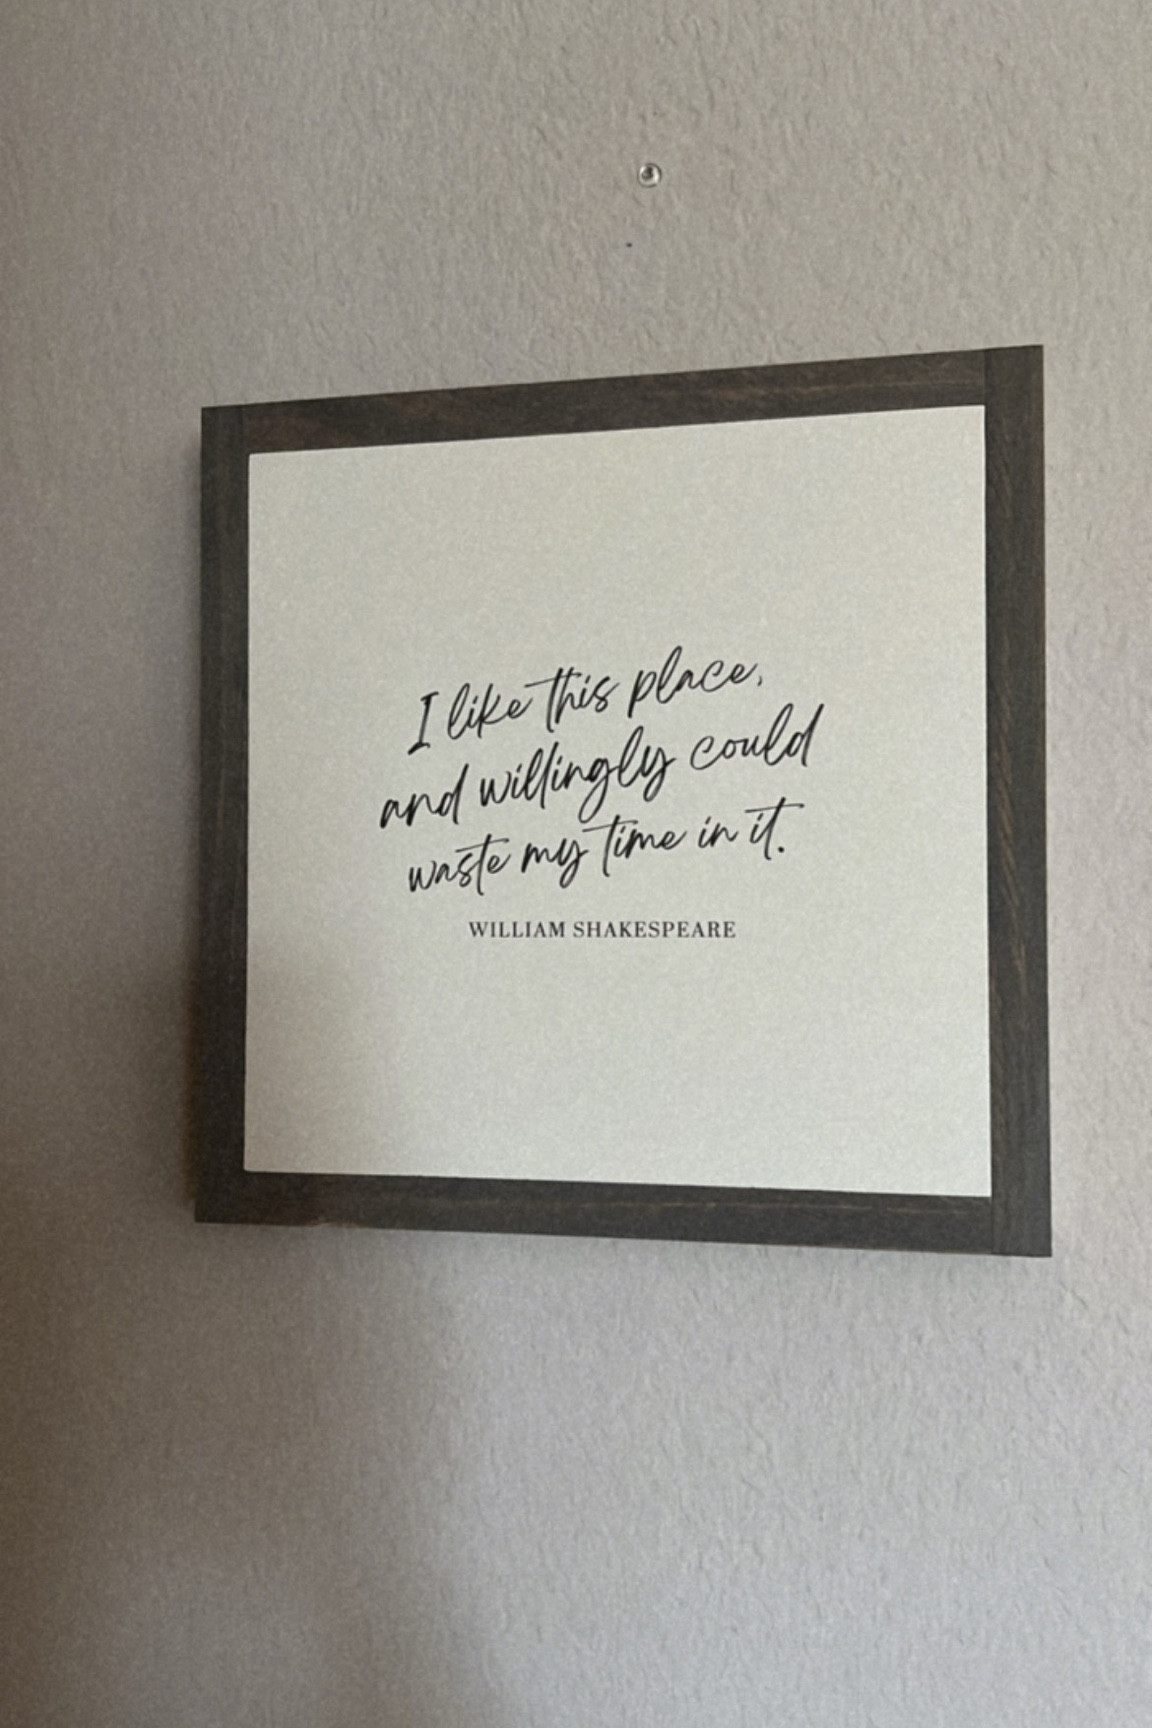 I like this place,
and willingly could
waste my time in it.
WILLIAM SHAKESPEARE